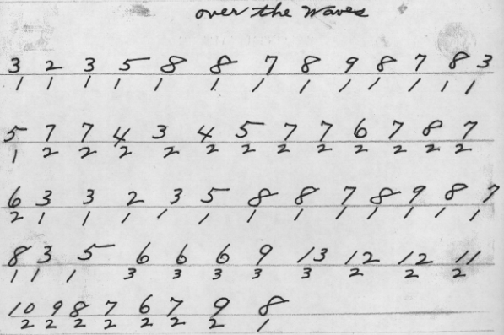 over the waves
3 2 3 5 8 8 7 8 9 8 7 8 3
1 1 1 1 1 1 1 1 1 1 1 1 1
5 7 7 4 3 4 5 7 7 6 7 8 7
1 2 2 2 2 2 2 2 2 2 2 2 2
6 3 3 2 3 5 8 8 7 8 9 8 7
2 1 1 1 1 1 1 1 1 1 1 1 1
8 3 5 6 6 6 9 13 12 12 11
1 1 1 3 3 3 3 3 2 2 2
10 9 8 7 6 7 9 8
2 2 2 2 2 2 2 1